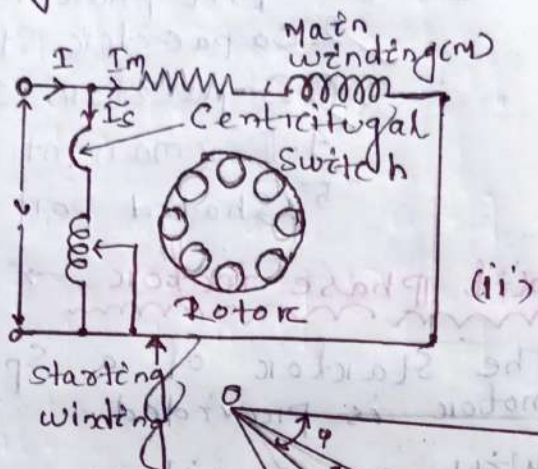 Main
winding(M)
I
Im
Is
Centicifugal
Switch
V
Rotor
(ii)
Starting
winding
O
φ